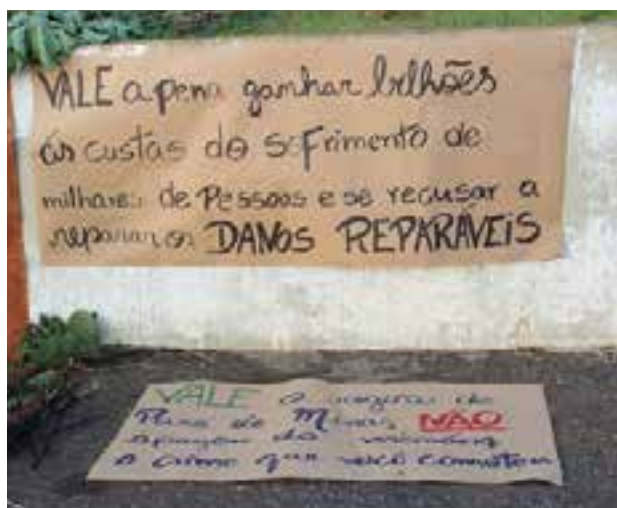 VALE a pena ganhar bilhões
ás custas do sofrimento de
milhares de Pessoas e se recusar a
reparar os DANOS REPARAVEIS
VALE a de
Pará de Minas NÃO
da
o crime que você cometeu